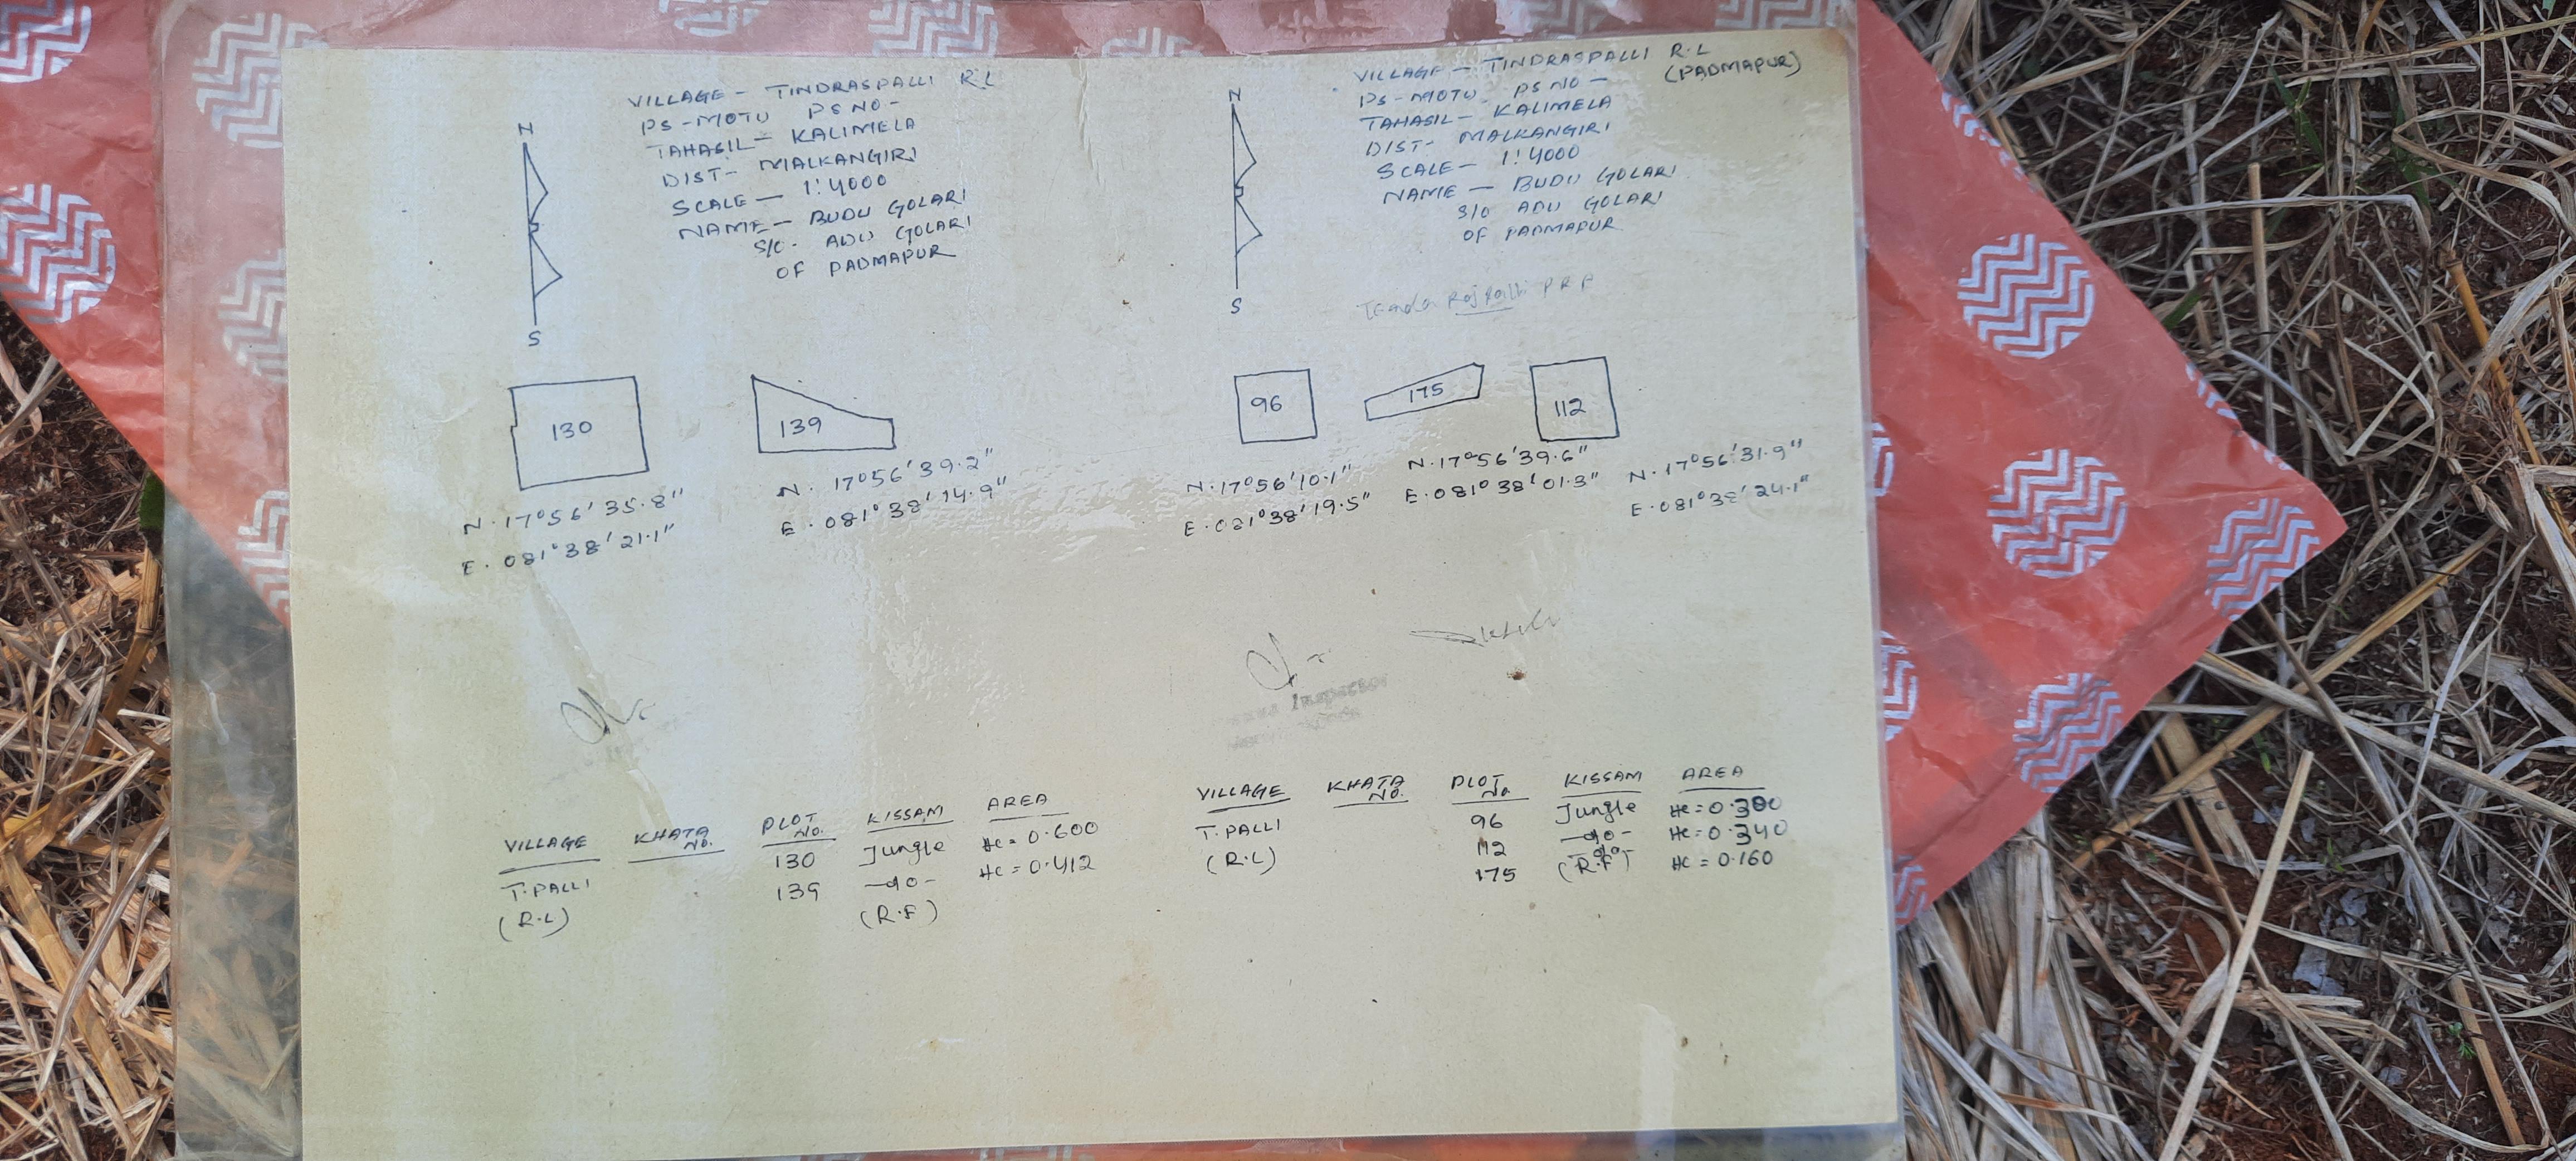 VILLAGE - TINDRASPALLI R.L
PS - MOTU PS NO -
TAHASIL - KALIMELA
DIST - MALKANGIRI
SCALE - 1:4000
NAME - BUDU GOLARI
S/O - ADU GOLARI
OF PADMAPUR
N
S
130
139
N. 17°56'35.8"
E. 081°38'21.1"
N. 17°56'39.2"
E. 081°38'14.9"
VILLAGE KHATA NO. PLOT NO. KISSAM AREA
T.PALLI 130 Jungle HC = 0.600
(R.L) 139 -do- HC = 0.412
(R.F)
VILLAGE - TINDRASPALLI R.L
(PADMAPUR)
PS - MOTU PS NO -
TAHASIL - KALIMELA
DIST - MALKANGIRI
SCALE - 1:4000
NAME - BUDU GOLARI
S/O ADU GOLARI
OF PADMAPUR
N
S
96
175
112
N. 17°56'10.1"
E. 081°38'19.5"
N. 17°56'39.6"
E. 081°38'01.3"
N. 17°56'31.9"
E. 081°38'24.1"
Inspector
VILLAGE KHATA NO. PLOT No. KISSAM AREA
T.PALLI 96 Jungle HC = 0.300
(R.L) 112 -do- HC = 0.340
175 -do- HC = 0.160
(R.F)